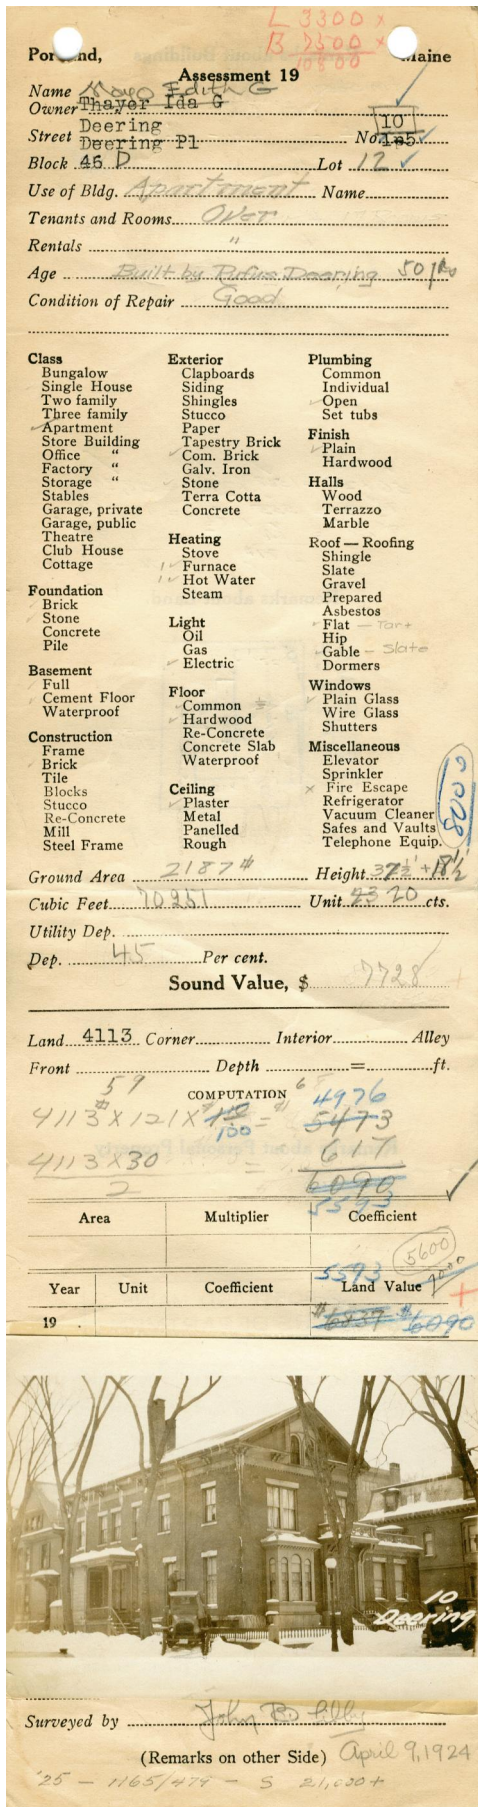 L 3300 x
B 7500 x
10800
Portland, Maine
Assessment 19
Name Mayo Edith G
Owner Thayer Ida G
Deering 10
Street Deering Pl No. 1-5
Block 46 D Lot 12
Use of Bldg. Apartment Name
Tenants and Rooms Over
Rentals "
Age Built by Rufus Deering 50 yrs
Condition of Repair Good
Class
Bungalow
Single House
Two family
Three family
Apartment
Store Building
Office "
Factory "
Storage "
Stables
Garage, private
Garage, public
Theatre
Club House
Cottage
Foundation
Brick
Stone
Concrete
Pile
Basement
Full
Cement Floor
Waterproof
Construction
Frame
Brick
Tile
Blocks
Stucco
Re-Concrete
Mill
Steel Frame
Exterior
Clapboards
Siding
Shingles
Stucco
Paper
Tapestry Brick
Com. Brick
Galv. Iron
Stone
Terra Cotta
Concrete
Heating
Stove
Furnace
Hot Water
Steam
Light
Oil
Gas
Electric
Floor
Common
Hardwood
Re-Concrete
Concrete Slab
Waterproof
Ceiling
Plaster
Metal
Panelled
Rough
Plumbing
Common
Individual
Open
Set tubs
Finish
Plain
Hardwood
Halls
Wood
Terrazzo
Marble
Roof — Roofing
Shingle
Slate
Gravel
Prepared
Asbestos
Flat — Tar
Hip
Gable — Slate
Dormers
Windows
Plain Glass
Wire Glass
Shutters
Miscellaneous
Elevator
Sprinkler
x Fire Escape
Refrigerator
Vacuum Cleaner
Safes and Vaults
Telephone Equip.
8000
Ground Area 2187 # Height 37½' + 18½'
Cubic Feet 70951 Unit 23 20 cts.
Utility Dep.
Dep. 45 Per cent.
Sound Value, $ 7728
Land 4113 Corner Interior Alley
Front Depth = ft.
59 COMPUTATION 4976
4113 # X 121 X 110/100 = $ 5473
4113 X 30 / 2 = 617
6090
5593
Area Multiplier Coefficient
5600
5593 7000
Year Unit Coefficient Land Value
19 $ 6837 $ 6090
10
Deering
Surveyed by John B Libby
(Remarks on other Side) April 9, 1924
'25 - 1165/479 - S 21,000+